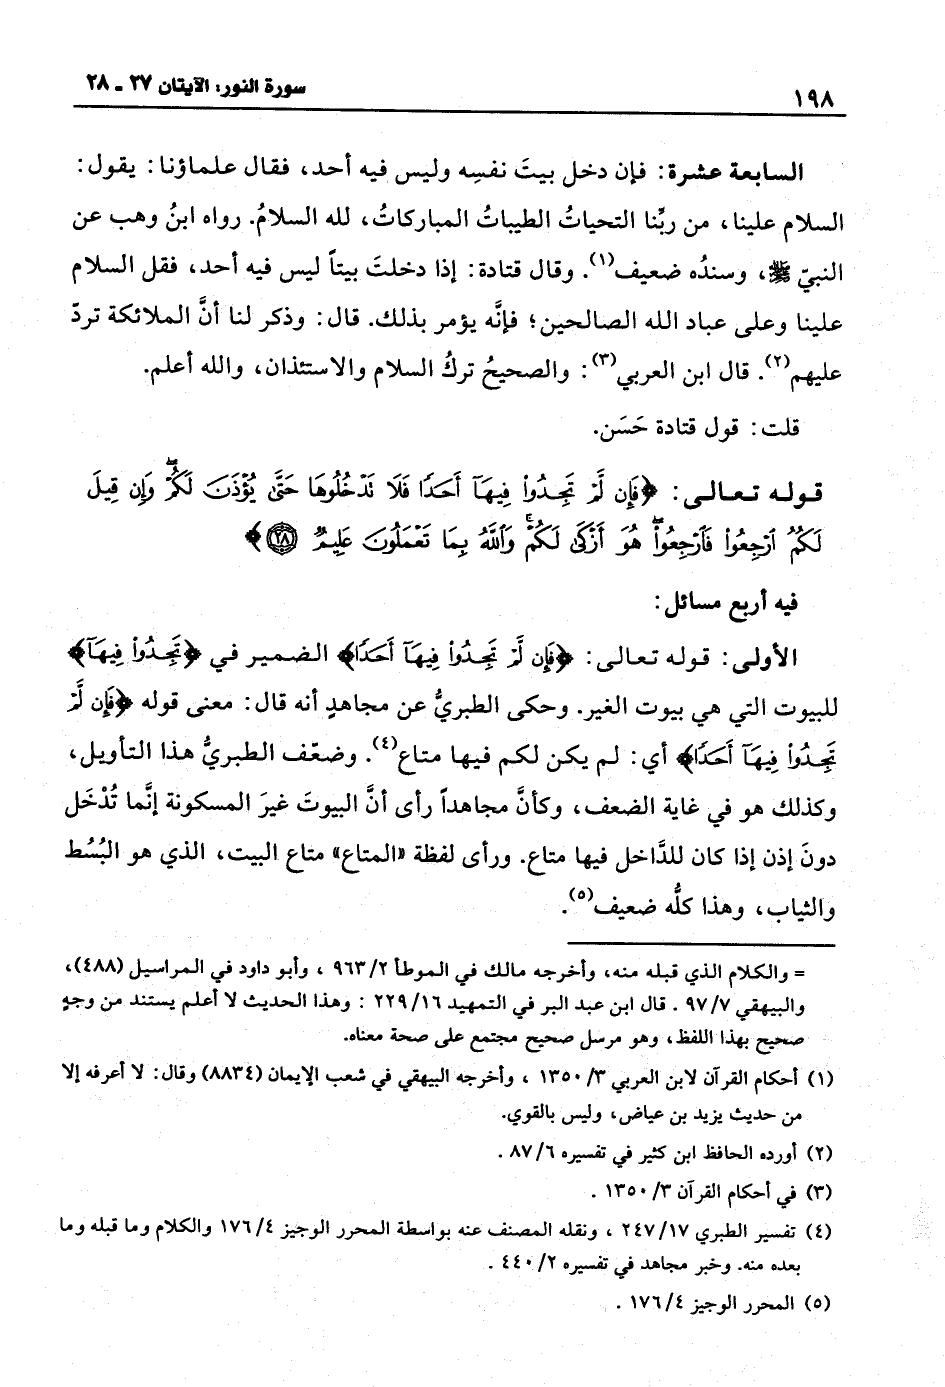 ١٩٨
سورة النور: الآيتان ٢٧ - ٢٨
السابعة عشرة: فإن دخل بيتَ نفسِه وليس فيه أحد، فقال علماؤنا: يقول:
السلام علينا، من ربِّنا التحياتُ الطيباتُ المباركاتُ، لله السلامُ. رواه ابنُ وهب عن
النبيّ ﷺ، وسندُه ضعيف(١). وقال قتادة: إذا دخلتَ بيتاً ليس فيه أحد، فقل السلام
علينا وعلى عباد الله الصالحين؛ فإنَّه يؤمر بذلك. قال: وذكر لنا أنَّ الملائكة تردّ
عليهم(٢). قال ابن العربي(٣): والصحيحُ تركُ السلام والاستئذان، والله أعلم.
قلت: قول قتادة حَسَن.
قوله تعالى: ﴿فَإِن لَّمْ تَجِدُوا۟ فِيهَآ أَحَدًا فَلَا تَدْخُلُوهَا حَتَّىٰ يُؤْذَنَ لَكُمْ ۖ وَإِن قِيلَ
لَكُمُ ٱرْجِعُوا۟ فَٱرْجِعُوا۟ ۖ هُوَ أَزْكَىٰ لَكُمْ ۚ وَٱللَّهُ بِمَا تَعْمَلُونَ عَلِيمٌ ٢٨﴾
فيه أربع مسائل:
الأولى: قوله تعالى: ﴿فَإِن لَّمْ تَجِدُوا۟ فِيهَآ أَحَدًا﴾ الضمير في ﴿تَجِدُوا۟ فِيهَآ﴾
للبيوت التي هي بيوت الغير. وحكى الطبريُّ عن مجاهدٍ أنه قال: معنى قوله ﴿فَإِن لَّمْ
تَجِدُوا۟ فِيهَآ أَحَدًا﴾ أي: لم يكن لكم فيها متاع(٤). وضعّف الطبريُّ هذا التأويل،
وكذلك هو في غاية الضعف، وكأنَّ مجاهداً رأى أنَّ البيوتَ غيرَ المسكونة إنَّما تُدْخَل
دونَ إذن إذا كان للدَّاخل فيها متاع. ورأى لفظة «المتاع» متاع البيت، الذي هو البُسُط
والثياب، وهذا كلُّه ضعيف(٥).
= والكلام الذي قبله منه، وأخرجه مالك في الموطأ ٩٦٣/٢ ، وأبو داود في المراسيل (٤٨٨)،
والبيهقي ٩٧/٧ . قال ابن عبد البر في التمهيد ٢٢٩/١٦ : وهذا الحديث لا أعلم يستند من وجهٍ
صحيح بهذا اللفظ، وهو مرسل صحيح مجتمع على صحة معناه.
(١) أحكام القرآن لابن العربي ١٣٥٠/٣ ، وأخرجه البيهقي في شعب الإيمان (٨٨٣٤) وقال: لا أعرفه إلا
من حديث يزيد بن عياض، وليس بالقوي.
(٢) أورده الحافظ ابن كثير في تفسيره ٨٧/٦ .
(٣) في أحكام القرآن ١٣٥٠/٣ .
(٤) تفسير الطبري ٢٤٧/١٧ ، ونقله المصنف عنه بواسطة المحرر الوجيز ١٧٦/٤ والكلام وما قبله وما
بعده منه. وخبر مجاهد في تفسيره ٤٤٠/٢ .
(٥) المحرر الوجيز ١٧٦/٤ .